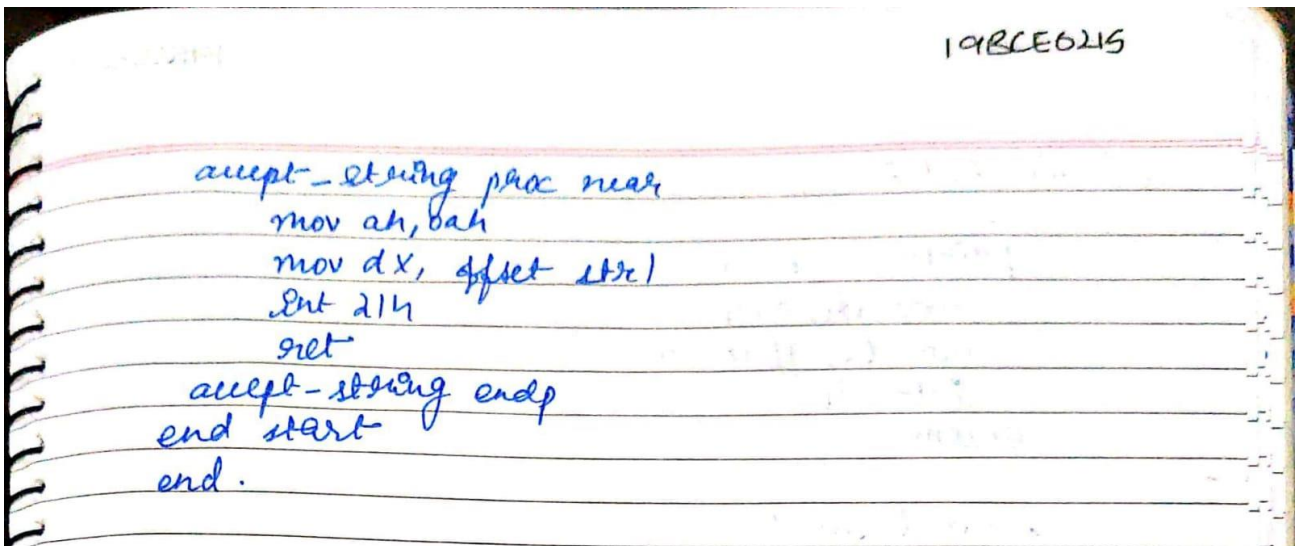 19BCE0215
accept-string proc near
mov ah, 0ah
mov dx, offset str1
int 21h
ret
accept-string endp
end start
end.